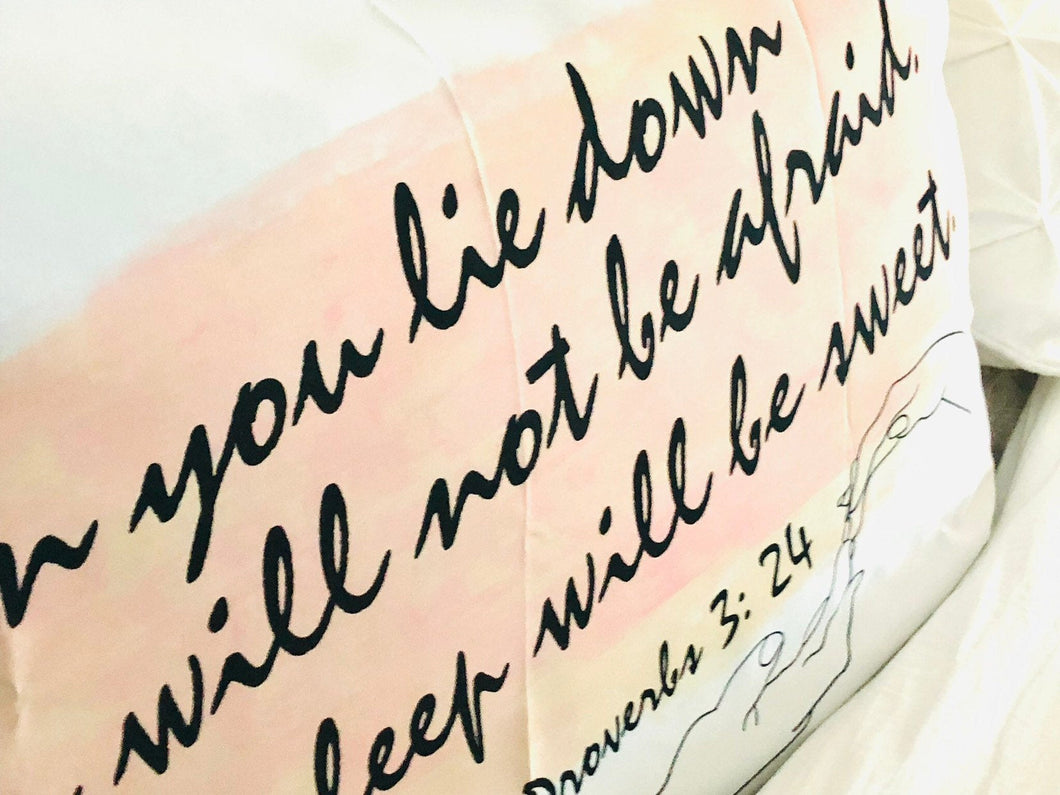 n you lie down
will not be afraid.
leep will be sweet.
Proverbs 3: 24